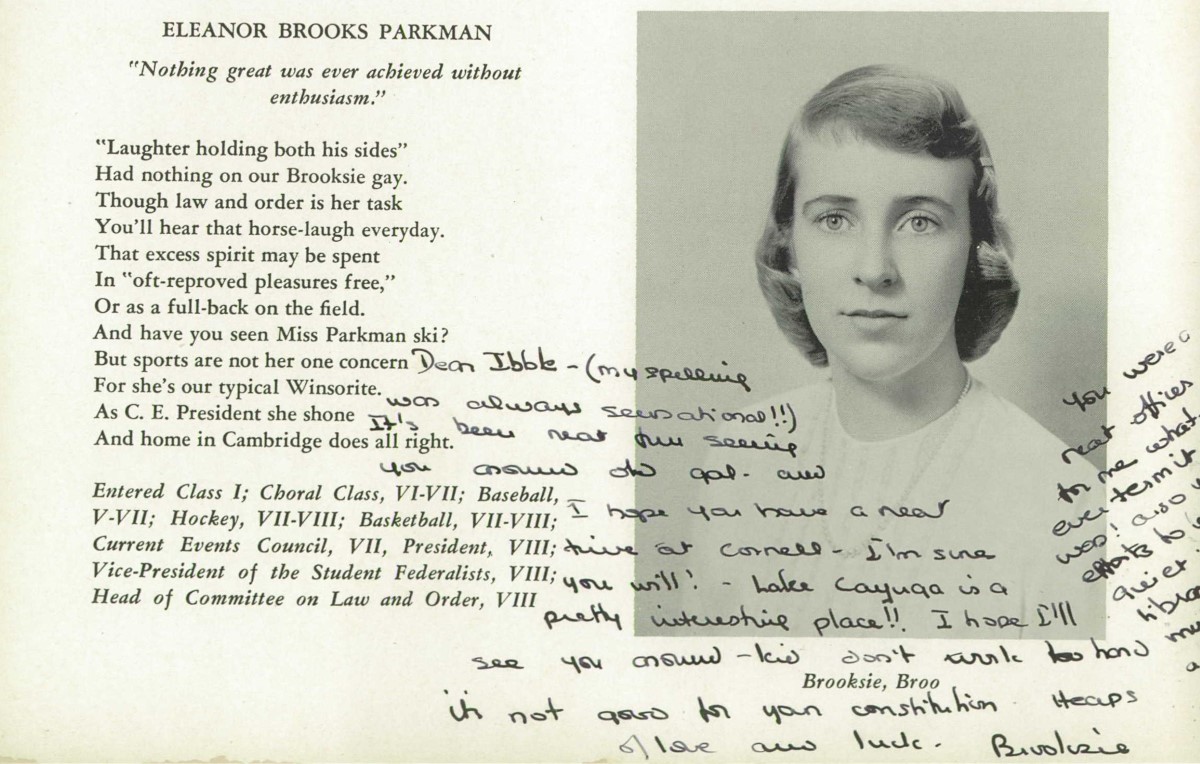 ELEANOR BROOKS PARKMAN
"Nothing great was ever achieved without
enthusiasm."
"Laughter holding both his sides"
Had nothing on our Brooksie gay.
Though law and order is her task
You'll hear that horse-laugh everyday.
That excess spirit may be spent
In "oft-reproved pleasures free,"
Or as a full-back on the field.
And have you seen Miss Parkman ski?
But sports are not her one concern
For she's our typical Winsorite.
As C. E. President she shone
And home in Cambridge does all right.
Entered Class I; Choral Class, VI-VII; Baseball,
V-VII; Hockey, VII-VIII; Basketball, VII-VIII;
Current Events Council, VII, President, VIII;
Vice-President of the Student Federalists, VIII;
Head of Committee on Law and Order, VIII
Dear - (my spelling
was always sensational!!)
It's been neat fun seeing
you around old gal - and
I hope you have a neat
time at Cornell - I'm sure
you will! - Lake Cayuga is a
pretty interesting place!! I hope I'll
see you around - kid don't work too hard
it's not good for your constitution. Heaps
of love and luck. Brooksie
Brooksie, Broo
you were a
neat officer
for me what
ever term it
was! also
efforts to
quiet